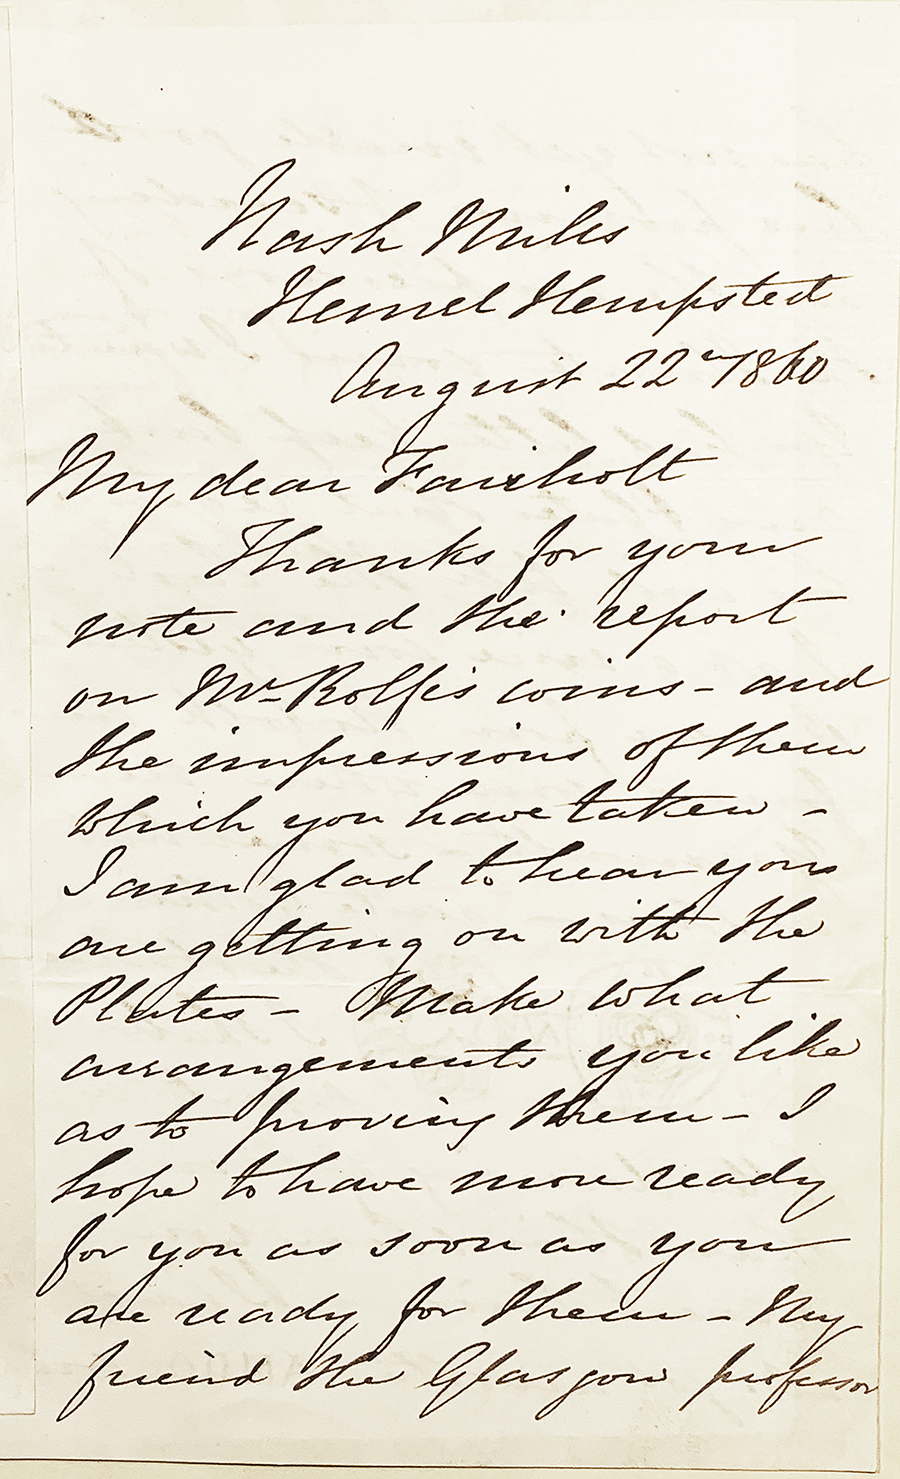 Nash Mills
Hemel Hempsted
August 22nd 1860
My dear Fairholt
Thanks for your
note and the report
on Mr. Rolfe's coins - and
the impressions of them
which you have taken -
I am glad to hear you
are getting on with the
Plates - Make what
arrangements you like
as to proving them - I
hope to have more ready
for you as soon as you
are ready for them - My
friend the Glasgow professor